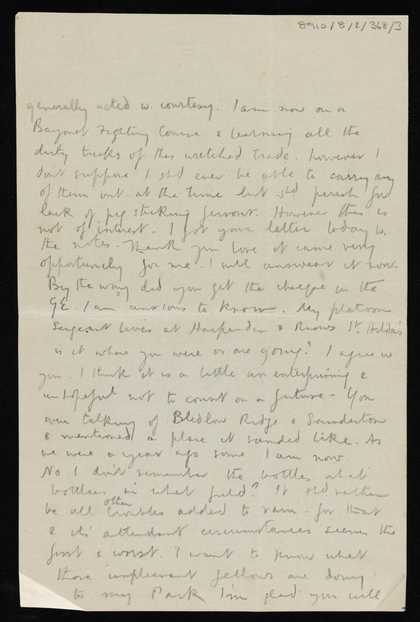 8910/8/2/368/3
generally acted w. courtesy. I am now on a
Bayonet Fighting Course & learning all the
dirty tricks of this wretched trade. However I
don't suppose I shd ever be able to carry any
of them out at the time but shd perish for
lack of pig sticking fervour. However this is
not of interest. I got your letter today &
the notes. Thank you love it came very
opportunely for me. I will answer it now.
By the way did you get the cheque in the
G.E. I am anxious to know. My platoon
Sergeant lives at Harpenden & knows St. Hilda's
is it where you were or are going? I agree w
you. I think it is a little unenterprising &
unhopeful not to count on a future. You
were talking of Bledlow Ridge & Saunderton
& mentioned a place it sounded like. As
we were a year ago some I am now
No I don't remember the bottles what
bottles in what field? It
be all other troubles added to rain - for that
& its attendant circumstances seems the
first & worst. I want to know what
those unpleasant fellows are doing
to my Park I'm glad you will